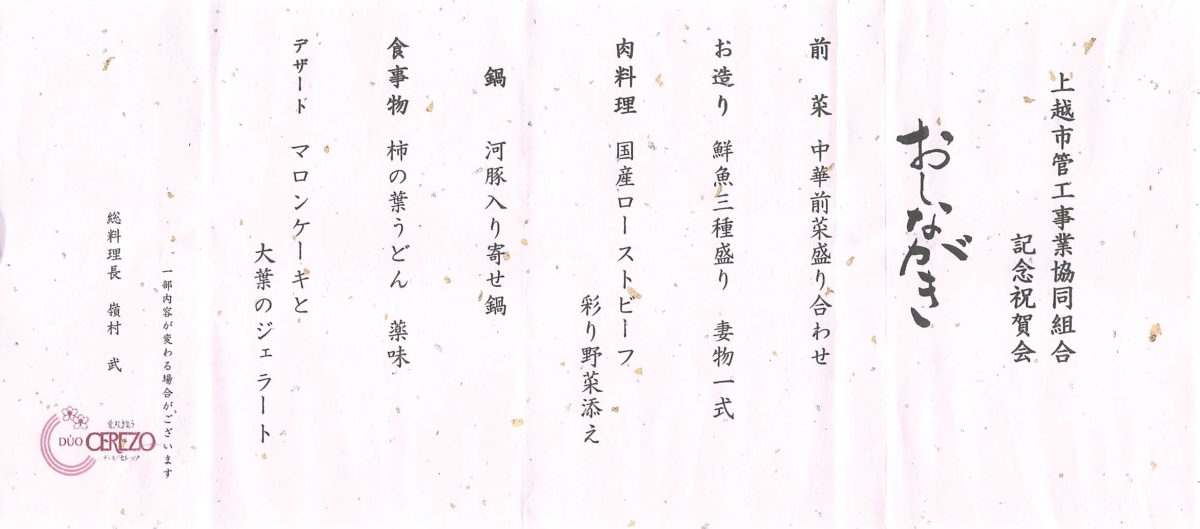 上越市管工事業協同組合
記念祝賀会
おしながき
前 菜 中華前菜盛り合わせ
お造り 鮮魚三種盛り 妻物一式
肉料理 国産ローストビーフ
彩り野菜添え
鍋 河豚入り寄せ鍋
食事物 柿の葉うどん 薬味
デザート マロンケーキと
大葉のジェラート
一部内容が変わる場合がございます
総料理長 嶺村 武
DÚO CEREZO